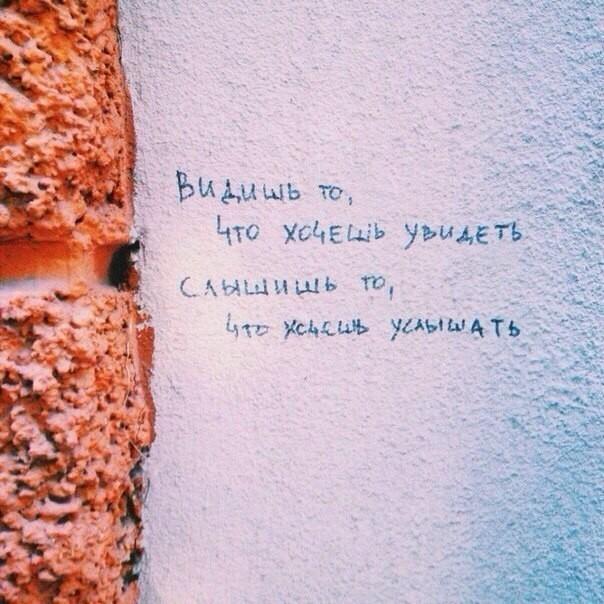 Видишь то,
что хочешь увидеть
слышишь то,
что хочешь услышать